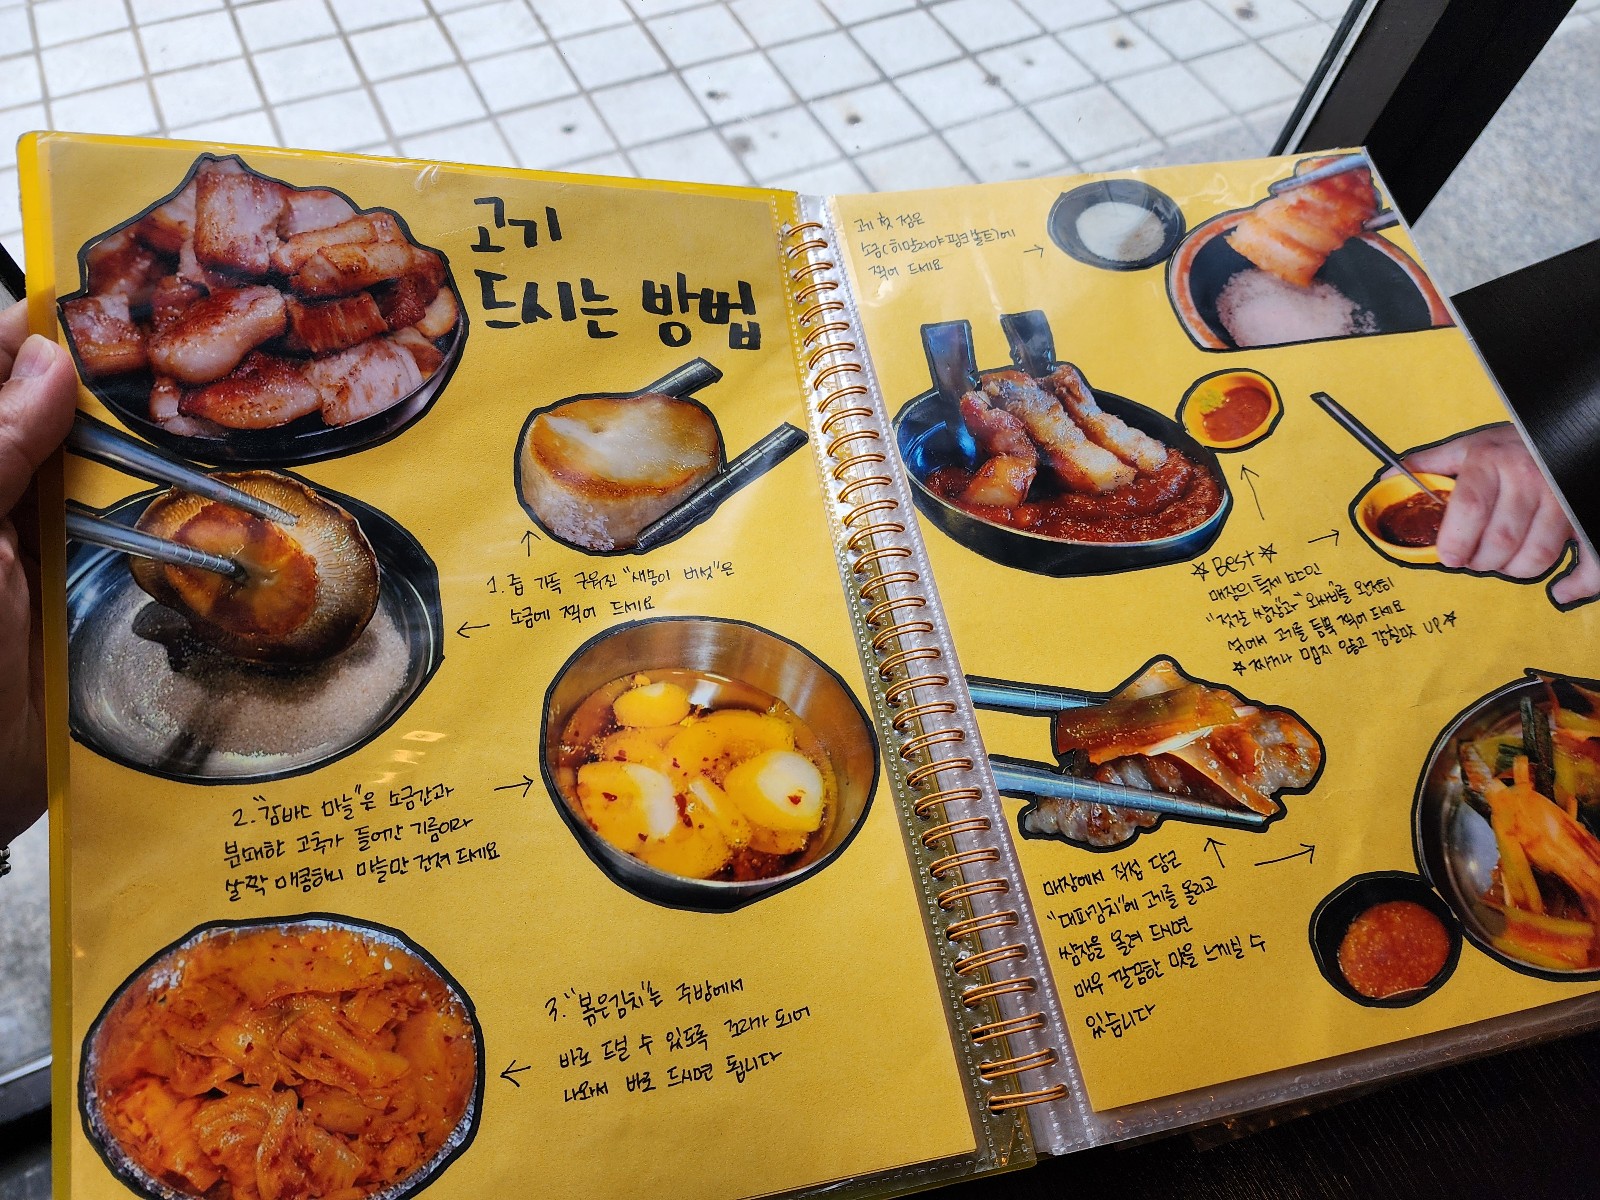 고기
드시는 방법
1. 즙 가득 구워진 "새송이 버섯"은
소금에 찍어 드세요
2. "감바스 마늘"은 소금간과
분쇄한 고추가 들어간 기름이라
살짝 매콤하니 마늘만 건져 드세요
3. "볶은김치"는 주방에서
바로 드실 수 있도록 조리가 되어
나와서 바로 드시면 됩니다
첫 점은
소금(히말라야핑크솔트)에
찍어 드세요
☆Best☆
매장의 특제 소스인
"젓갈 쌈장"과 "와사비"를 완전히
섞어서 고기를 듬뿍 찍어 드세요
☆ 짜거나 맵지 않고 감칠맛 UP☆
매장에서 직접 담근
"대파김치"에 고기를 올리고
쌈장을 올려 드시면
매우 깔끔한 맛을 느끼실 수
있습니다